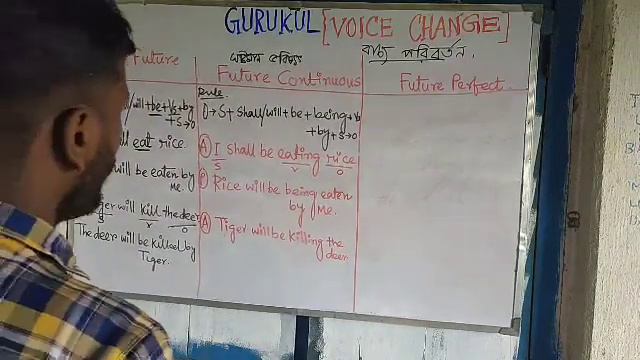 GURUKUL [VOICE CHANGE]
বাচ্য পরিবর্তন.
Future
/will+be+V3+by
+S→O
eat rice.
will be eaten by
me.
will kill the deer
S V O
The deer will be killed by
Tiger.
Future Continuous
Rule
O→S+ shall/will+be+being+V3
+by+S→O
(A) I shall be eating rice
S V O
(P) Rice will be being eaten
by me.
(A) Tiger will be killing the
deer
Future Perfect